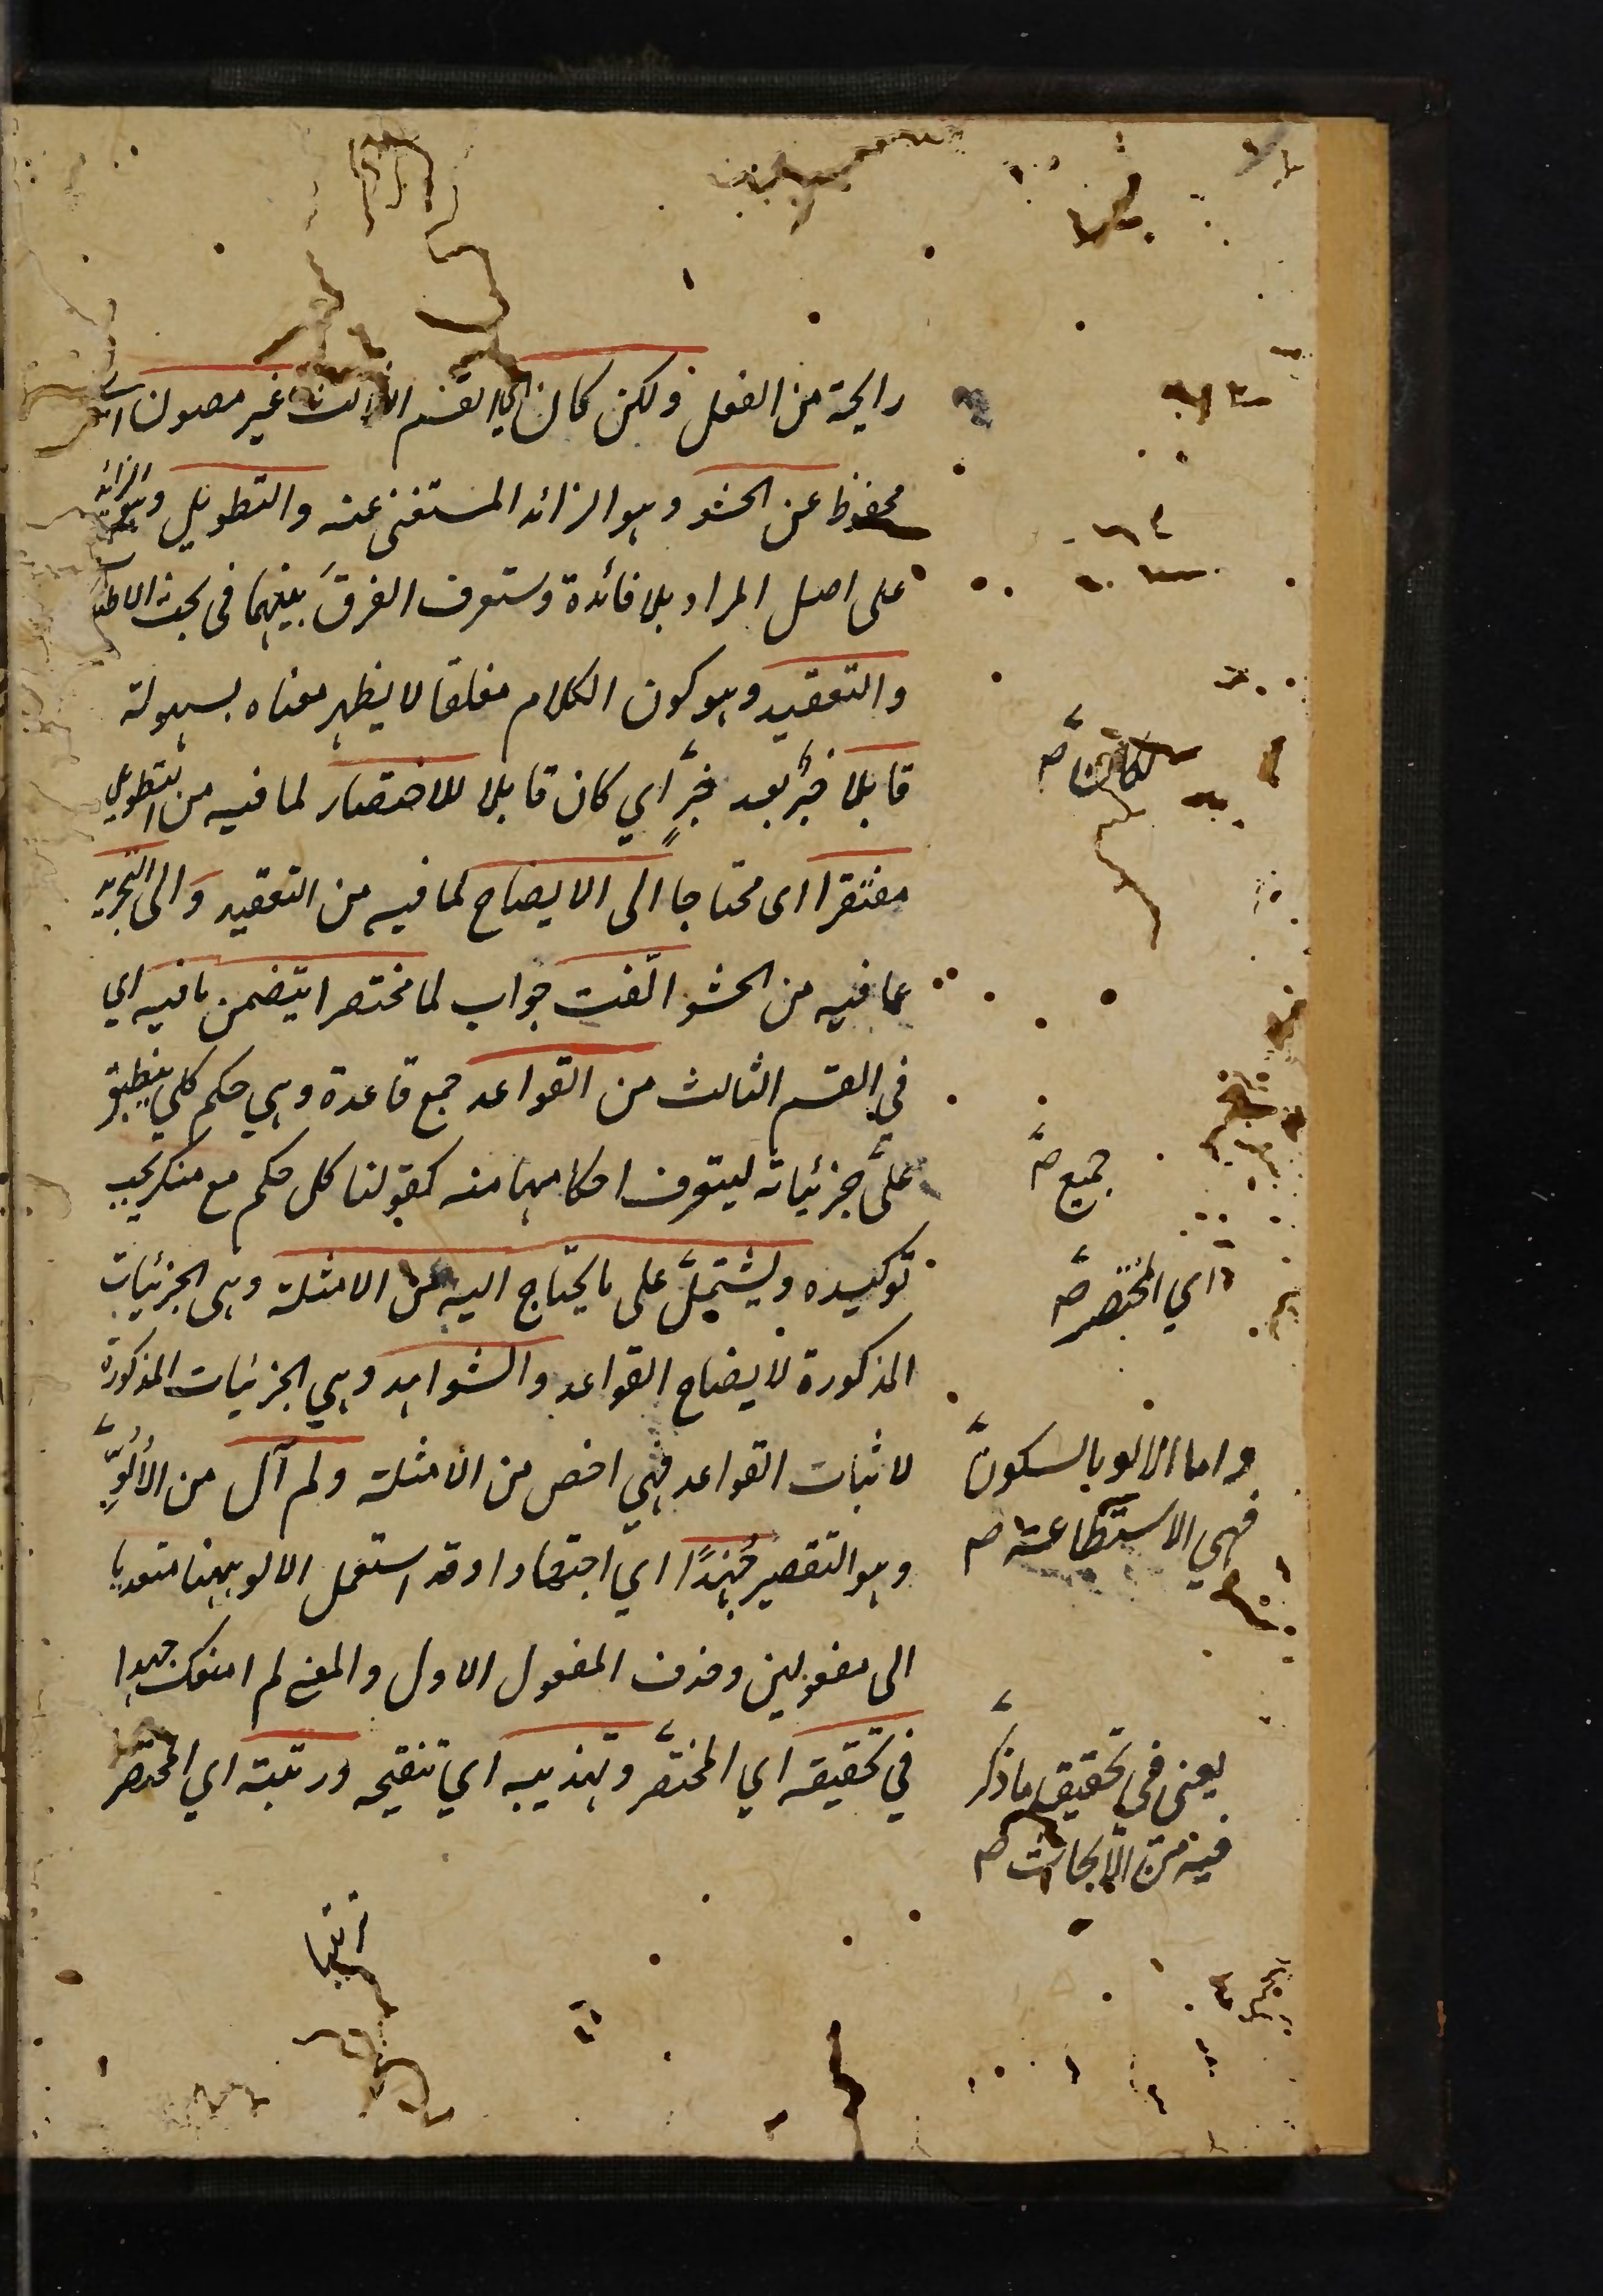 رايحة من الفعل ولكن كان اي القسم الثالث غير مصون اي
محفوظ عن الحشو وهو الزائد المستغنى عنه والتطويل وهو الزائد
على اصل المراد بلا فائدة وستعرف الفرق بينهما فى بحث الاطناب
والتعقيد وهو كون الكلام مغلقا لا يظهر معناه بسهولة
قابلا خبرٌ بعد خبرٍ اي كان قابلا للاختصار لما فيه من التطويل
مفتقرا اى محتاجا الى الايضاح لما فيه من التعقيد والى التجريد
عما فيه من الحشو الّفت جواب لما مختصرا يتضمن ما فيه اي
في القسم الثالث من القواعد جمع قاعدة وهي حكم كلي ينطبق
على جزئياته ليتعرف احكامها منه كقولنا كل حكم مع منكر يجب
توكيده ويشتمل على ما يحتاج اليه من الامثلة وهى الجزئيات
المذكورة لايضاح القواعد والشواهد وهي الجزئيات المذكورة
لاثبات القواعد فهي اخص من الامثلة ولم آل من الأُلُوّ
وهو التقصير جُهدًا اي اجتهادا وقد استعمل الالو ههنا متعديا
الى مفعولين وحذف المفعول الاول والمعنى لم امنعك جهدا
في تحقيقه اي المختصر وتهذيبه اي تنقيحه ورتبته اي المختصر
ترتيبا
لكائن صح
جميع صح
اي المختصر صح
واما الالو بالسكون
فهي الاستطاعة صح
يعنى في تحقيق ما ذكر
فيه من الابحاث صح